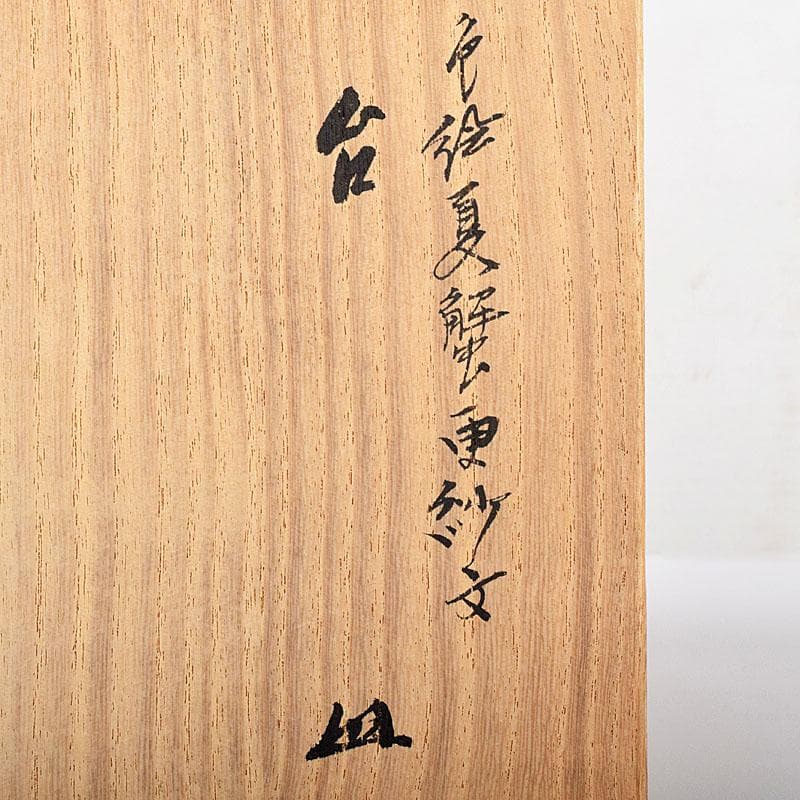 色絵夏蟹更紗文
台皿